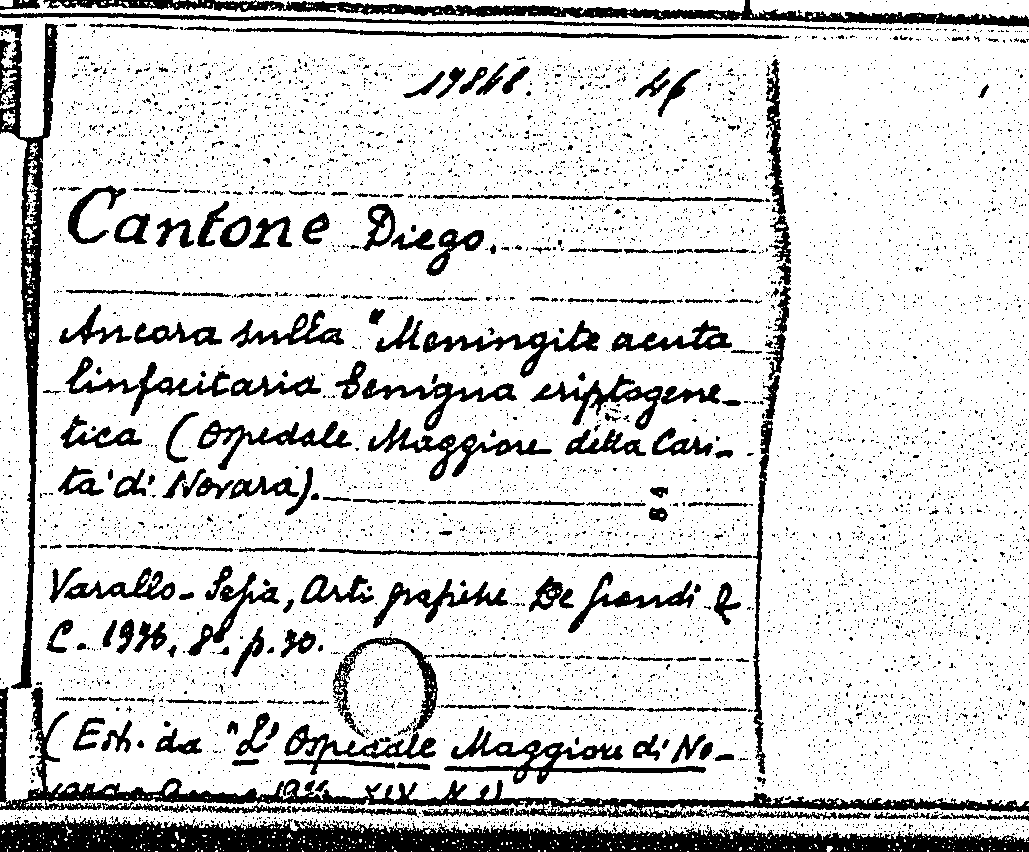 19848. 46
Cantone Diego.
Ancora sulla "Meningite acuta
linfocitaria benigna criptogene-
tica (Ospedale Maggiore della Cari-
tà di Novara).
84
Varallo-Sesia, Arti grafiche De Grandi &
C. 1936. 8°. p. 30.
(Estr. da "L' Ospedale Maggiore di No-
vara" Anno XIV. N.